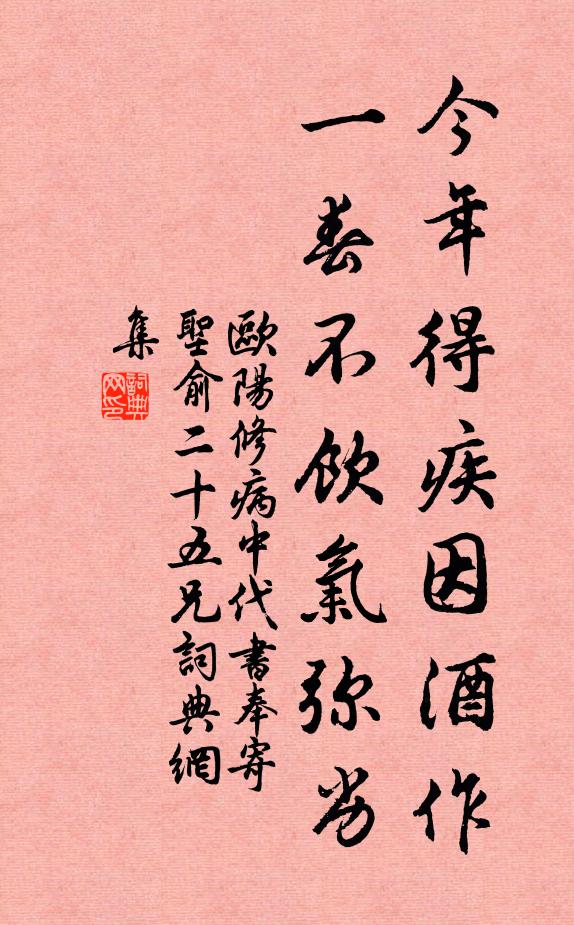 今年得疾因酒作
一春不飲氣弥劣
歐陽修病中代書奉寄
聖俞二十五兄詞典網
集
詞典
网印